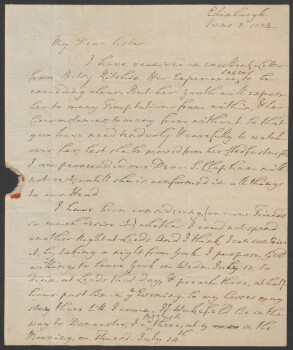 Edinburgh
June 3. 1774
My Dear Sister
I have received an excellent Letter
from Betsy Ritchie. Her Experience seems to be
exceeding clear. But her Youth will expose
her to many Temptations from within, & her
Circumstances to many from without. So that
you have need tenderly & carefully to watch
over her, lest she be moved from her Stedfastness.
I am persuaded our Dear S. Clapham will
not rest, until she is conformed in all things
to our Head.
I have been considering (as
Friends
so much desire it) whether I could not spend
another Night at Leeds. And I think I can contrive
it, by taking a night from York. I purpose, God
willing, to leave York on
July 13, to
dine at Leeds that day, & preach there, at half
hour past Six in ye Evening; to
stay there till
If
lie in the
way to Doncaster, I
there, at 9
in the
Morning, on Thursd. July 14th